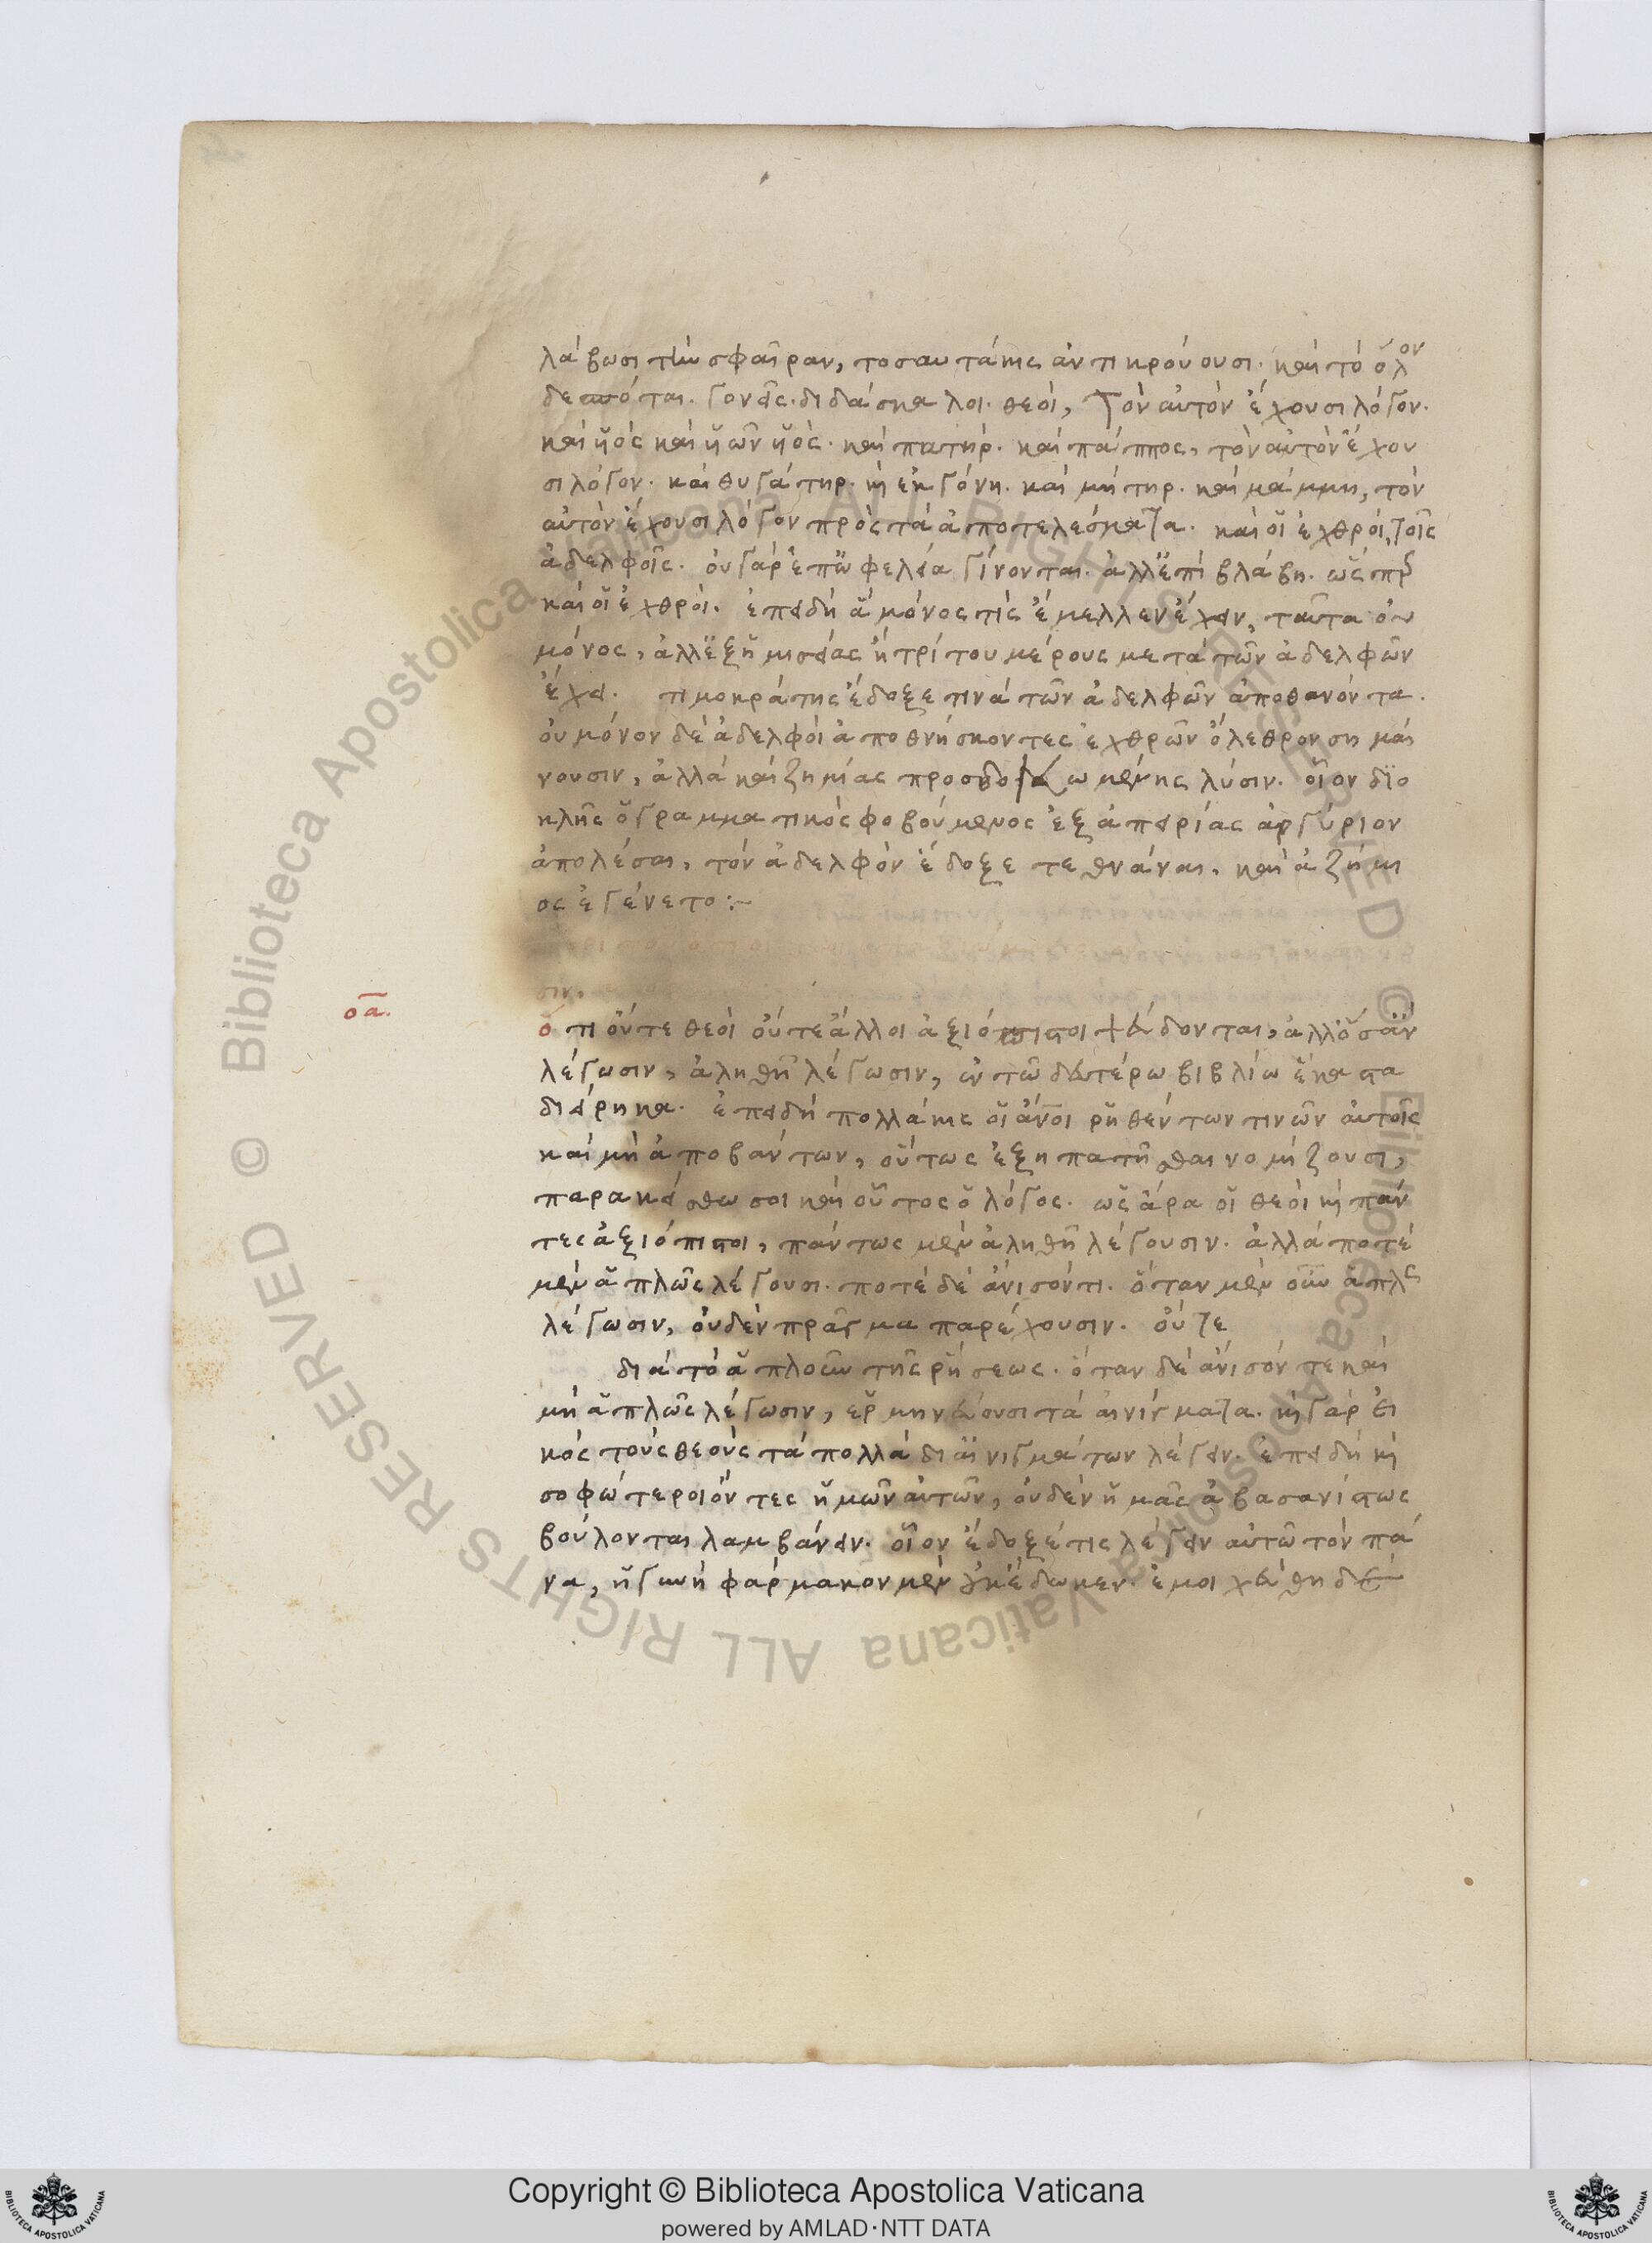 λάβωσι τὴν σφαῖραν, τοσαυτάκις ἀντικρούουσι. καὶ τὸ ὅλον
δεσπόται. γονεῖς. διδάσκαλοι. θεοὶ, τὸν αὐτὸν ἔχουσι λόγον.
καὶ ὗὸς καὶ ὗων ὗὸς. καὶ πατήρ. καὶ πάππος, τὸν αὐτὸν ἔχου
σι λόγον. καὶ θυγάτηρ. καὶ ἐκγόνη. καὶ μήτηρ. καὶ μάμμη, τὸν
αὐτὸν ἔχουσι λόγον πρὸς τὰ ἀποτελέσματα. καὶ οἱ ἐχθροὶ, τοῖς
ἀδελφοῖς. οὐ γὰρ ἐπ' ὠφελεία γίνονται. ἀλλ' ἐπὶ βλάβη. ὥσπερ
καὶ οἱ ἐχθροί. ἐπειδὴ ἃ μόνος τὶς ἔμελλεν ἔχειν, ταῦτα οὐ
μόνος, ἀλλ' ἐξ ἡμισείας ἢ τρίτου μέρους μετὰ τῶν ἀδελφῶν
ἔχει. τιμοκράτης ἔδοξε τινὰ τῶν ἀδελφῶν ἀποθανόντα.
οὐ μόνον δὲ ἀδελφοὶ ἀποθνήσκοντες ἐχθρῶν ὄλεθρον σημαί
νουσιν, ἀλλὰ καὶ ζημίας προσδοκωμένης λύσιν. οἷον διο
κλῆς ὁ γραμματικὸς φοβούμενος ἐξ ἀπειρίας ἀργύριον
ἀπολέσαι, τὸν ἀδελφὸν ἔδοξε τεθνάναι, καὶ ἀζήμι
ος ἐγένετο :~
σιν.
οα.
ὅτι οὔτε θεοὶ οὔτε ἄλλοι ἀξιόπιστοι ψεύδονται, ἀλλ' ὅσα ἂν
λέγωσιν, ἀληθῆ λέγωσιν, ἐν τῶ δευτέρω βιβλίω ἕκαστα
διείρηκα. ἐπειδὴ πολλάκις οἱ ἄνοι ῥηθέντων τινῶν αὐτοῖς
καὶ μὴ ἀποβάντων, οὕτως ἐξηπατῆσθαι νομίζουσι,
παρακείσθω σοι καὶ οὗτος ὁ λόγος. ὡς ἄρα οἱ θεοὶ καὶ πάν
τες ἀξιόπιστοι, πάντως μὲν ἀληθῆ λέγουσιν. ἀλλὰ ποτὲ
μὲν ἁπλῶς λέγουσι. ποτὲ δὲ ἀνισόντι. ὅταν μὲν οὖν ἁπλῶς
λέγωσιν, οὐδὲν πρᾶγμα παρέχουσιν. οὔτε
διὰ τὸ ἁπλοῦν τῆς ῥήσεως. ὅταν δὲ ἀνισόν τε καὶ
μὴ ἁπλῶς λέγωσιν, ἑρμηνεύουσι τὰ αἰνίγματα. καὶ γὰρ εἰ
κὸς τοὺς θεοὺς τὰ πολλὰ δι' αἰνιγμάτων λέγειν. ἐπειδὴ καὶ
σοφώτεροι ὄντες ἡμῶν αὐτῶν, οὐδὲν ἡμᾶς ἀβασανίστως
βούλονται λαμβάνειν. οἷον ἔδοξέ τις λέγειν αὐτῶ τὸν πᾶ
να, ἡ γυνὴ φάρμακον μὲν οὐκ ἔδωκεν. ἐμοι χεύθη δὲ